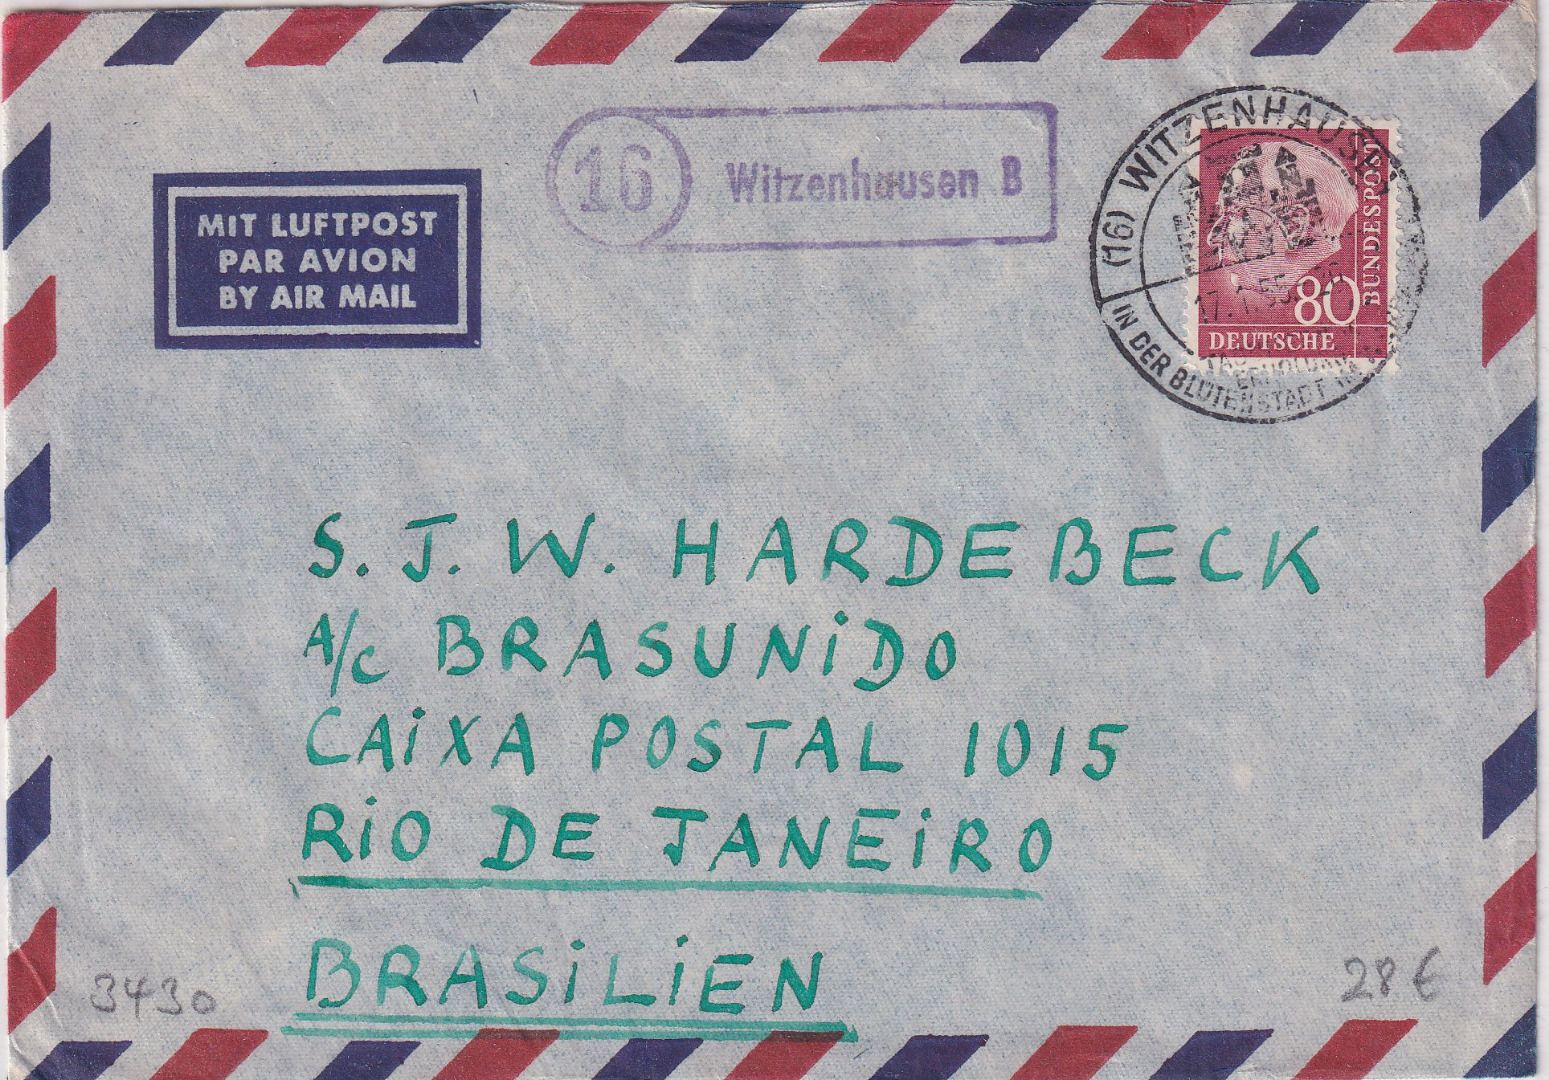 MIT LUFTPOST
PAR AVION
BY AIR MAIL
16 Witzenhausen B
(16) WITZENHAUSEN
17.1.55
IN DER BLÜTENSTADT
80
DEUTSCHE
BUNDESPOST
S. J. W. HARDEBECK
A/C BRASUNiDO
CAiXA POSTAL 1015
RiO DE JANEiRO
BRASiLiEN
3430
28 €